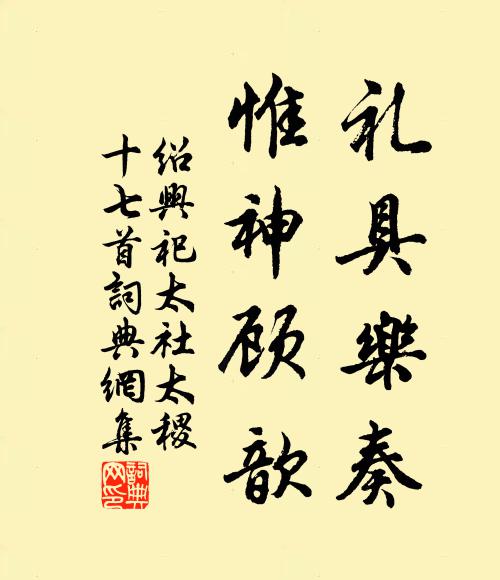 礼具樂奏
惟神顾歆
绍興祀太社太稷
十七首詞典網集
詞典網印